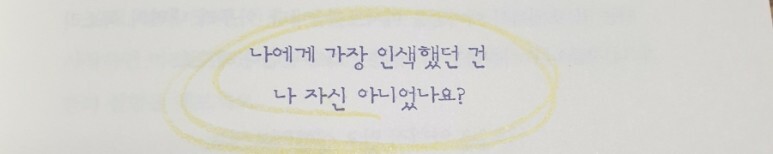 나에게 가장 인색했던 건
나 자신 아니었나요?